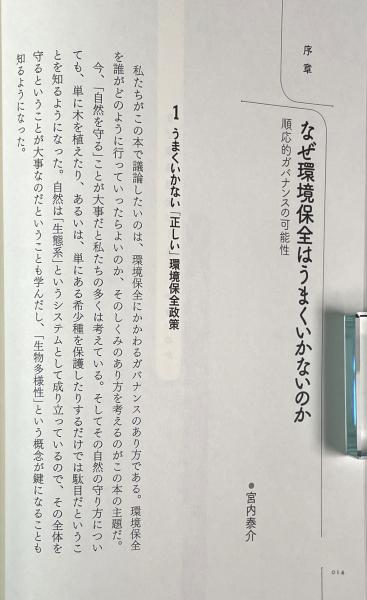 序章
なぜ環境保全はうまくいかないのか
順応的ガバナンスの可能性
●宮内泰介
1 うまくいかない「正しい」環境保全政策
私たちがこの本で議論したいのは、環境保全にかかわるガバナンスのあり方である。環境保全
を誰がどのように行っていったらよいのか、そのしくみのあり方を考えるのがこの本の主題だ。
今、「自然を守る」ことが大事だと私たちの多くは考えている。そしてその自然の守り方につい
ても、単に木を植えたり、あるいは、単にある希少種を保護したりするだけでは駄目だというこ
とを知るようになった。自然は「生態系」というシステムとして成り立っているので、その全体を
守るということが大事なのだということも学んだし、「生物多様性」という概念が鍵になることも
知るようになった。
014